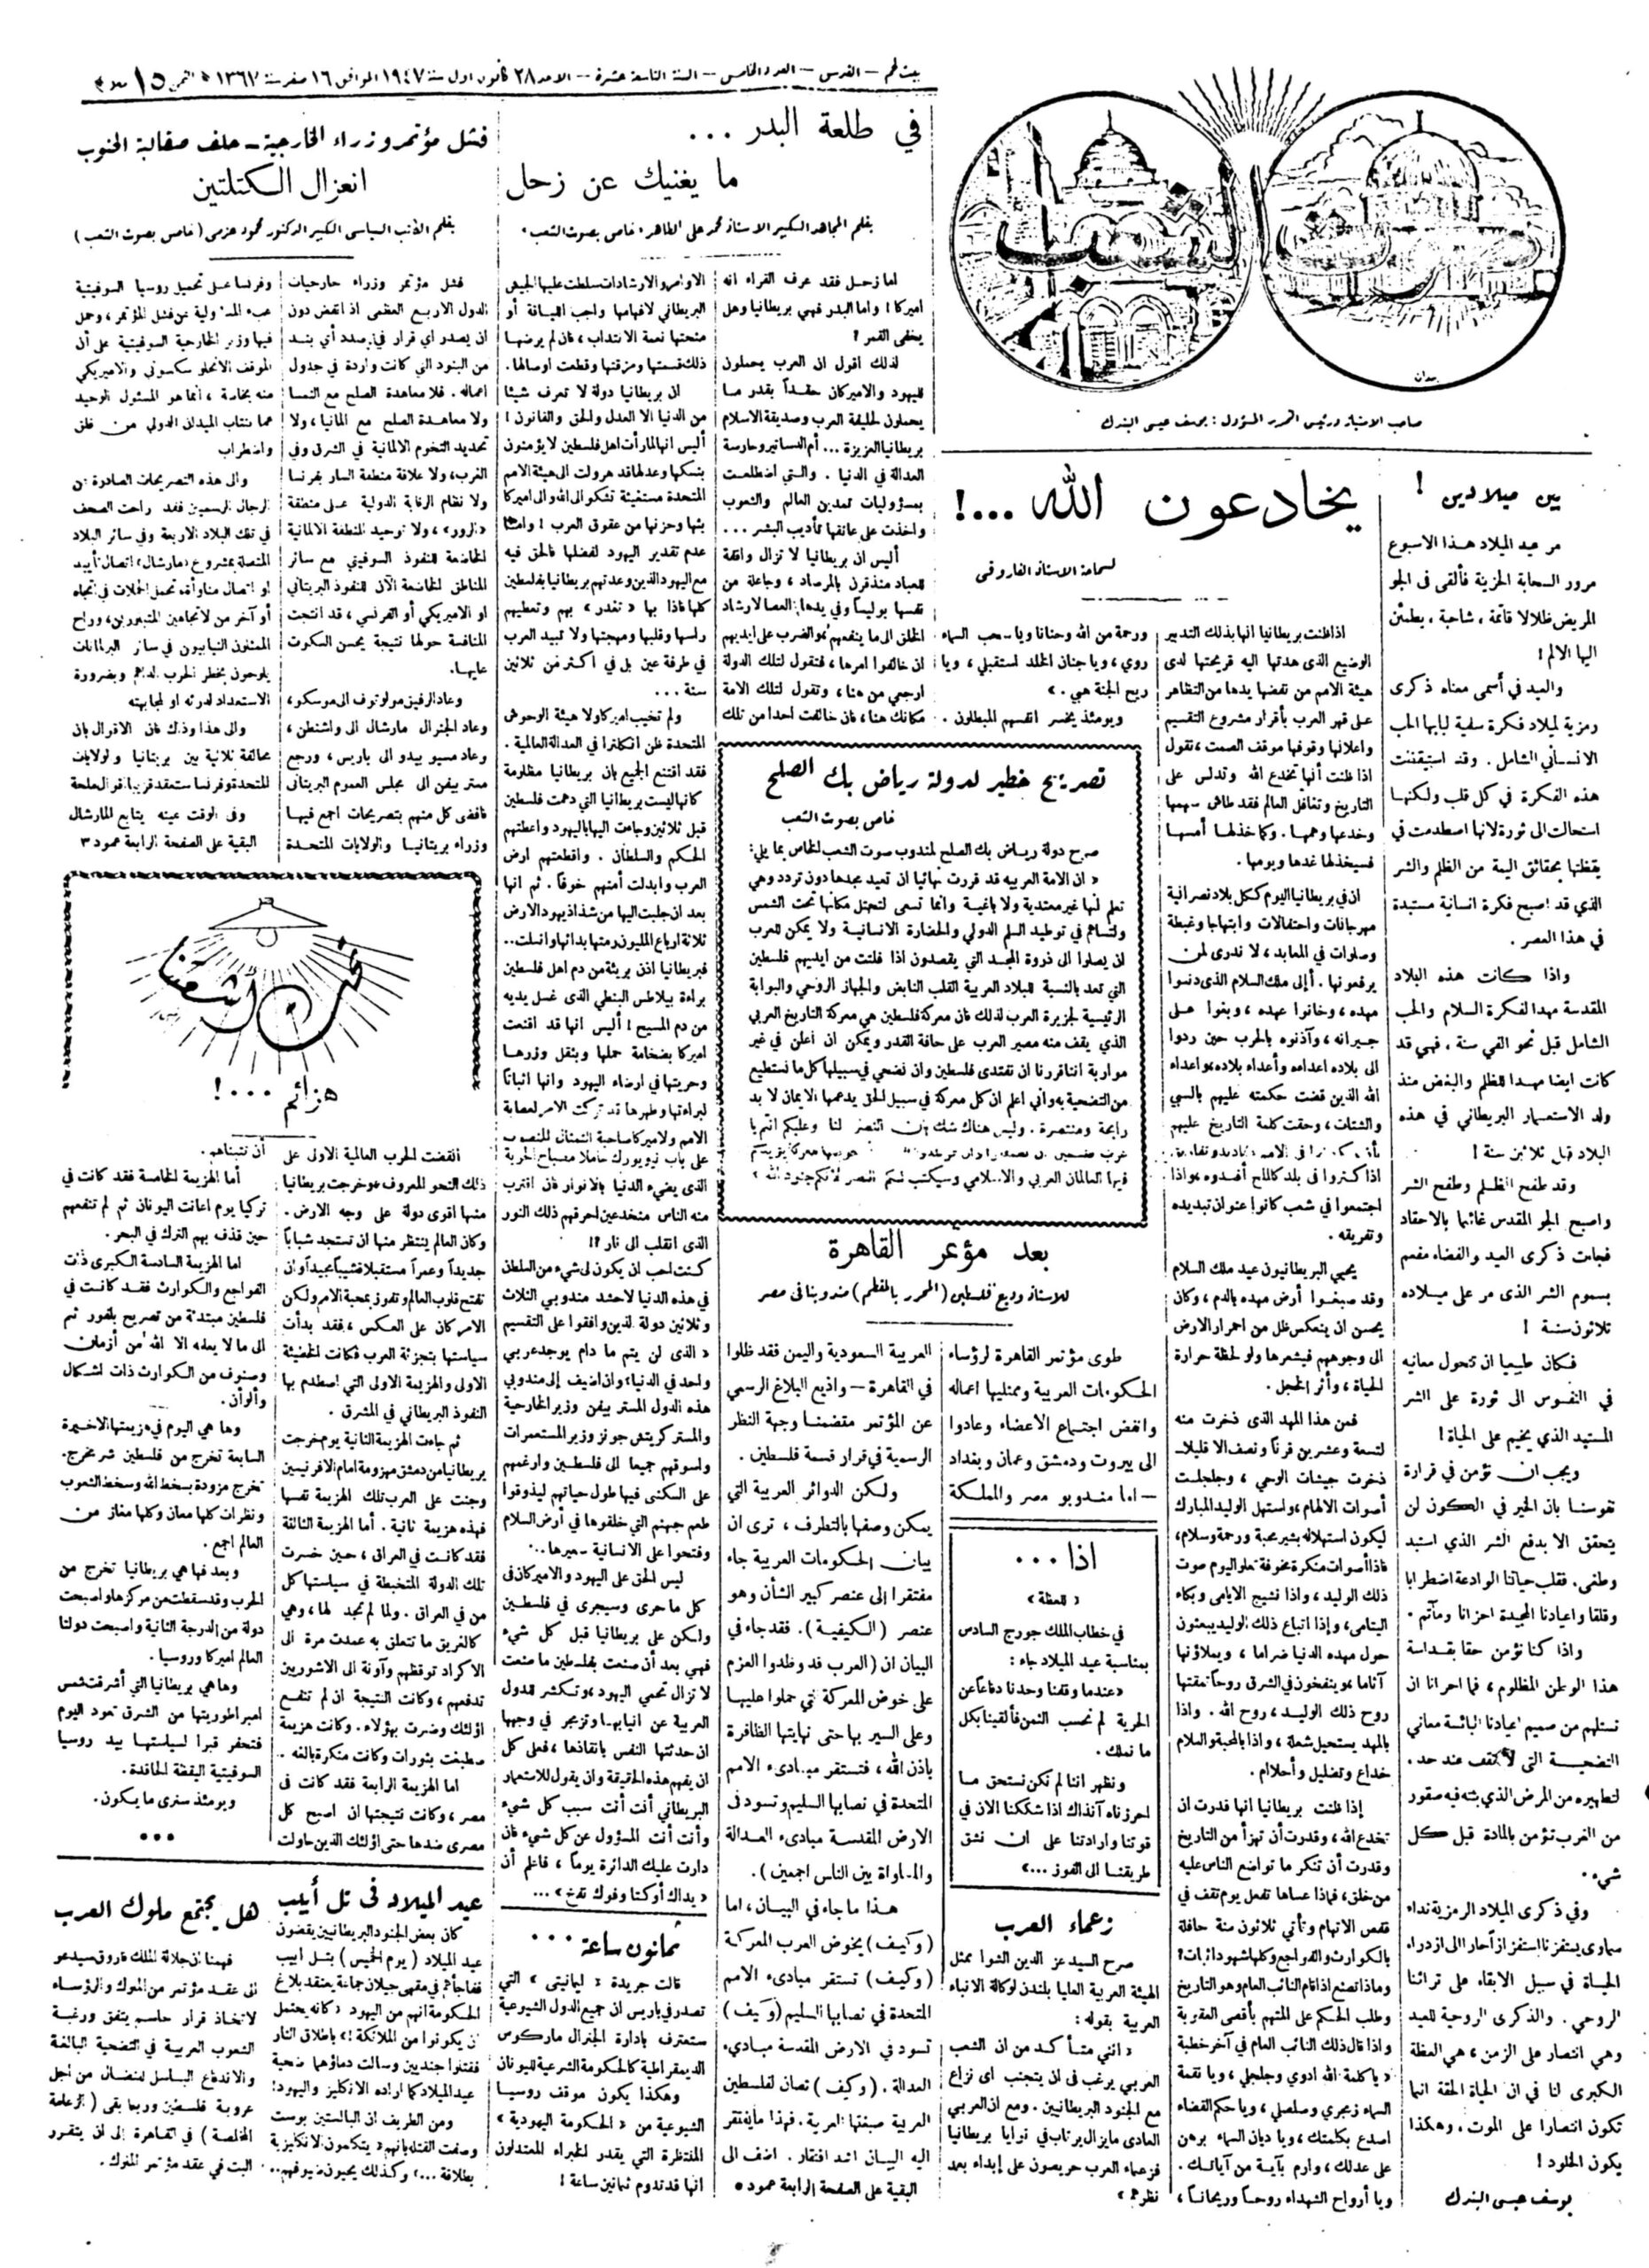 بيت لحم – القدس – العدد الخامس – السنة التاسعة عشرة – الاحد ٢٨ كانون اول سنة ١٩٤٧ الموافق ١٦ صفر سنة ١٣٦٧ الثمن ١٥ ملا
صوت الشعب
صاحب الامتياز ورئيس التحرير المسؤول : يوسف عيسى البندك
بين ميلادين !
مر عيد الميلاد هذا الاسبوع
مرور السحابة الحزينة فألقى فى الجو
المريض ظلالا قاتمة ، شاحبة ، يطمئن
اليها الالم !
والعيد في أسمى معناه ذكرى
رمزية لميلاد فكرة سامية لبابها الحب
الانساني الشامل . وقد استيقنت
هذه الفكرة في كل قلب ولكنها
استحالت الى ثورة لانها اصطدمت في
يقظتها بحقائق اليمة من الظلم والشر
الذي قد اصبح فكرة انسانية مستبدة
في هذا العصر .
واذا كانت هذه البلاد
المقدسة مهدا لفكرة السلام والحب
الشامل قبل نحو الفي سنة ، فهي قد
كانت ايضا مهدا للظلم والبغض منذ
ولد الاستعمار البريطاني في هذه
البلاد قبل ثلاثين سنة !
وقد طفح الظلم وطفح الشر
واصبح الجو المقدس غائما بالاحقاد
فجاءت ذكرى العيد والفضاء مفعم
بسموم الشر الذى مر على ميلاده
ثلاثون سنة !
فكان طبيعيا ان تتحول معانيه
في النفوس الى ثورة على الشر
المستبد الذي يخيم على الحياة !
ويجب ان نؤمن في قرارة
نفوسنا بان الخير في الكون لن
يتحقق الا بدفع الشر الذي استبد
وطغى . فقلب حياتنا الوادعة اضطرابا
وقلقا واعيادنا المجيدة احزانا ومآتم .
واذا كنا نؤمن حقا بقداسة
هذا الوطن المظلوم ، فما احرانا ان
نستلهم من صميم اعيادنا البائسة معاني
التضحية التى لا تقف عند حد .
لتطهيره من المرض الذي بثه فيه صقور
من الغرب تؤمن بالمادة قبل كل
شيء .
وفي ذكرى الميلاد الرمزية نداء
سماوى يستفزنا استفزازا حارا الى ازدراء
الحياة في سبيل الابقاء على تراثنا
الروحي . والذكرى الروحية للعيد
وهي انتصار على الزمن ، هي العظة
الكبرى لنا في ان الحياة الحقة انما
تكون انتصارا على الموت . وهكذا
يكون الخلود !
يوسف عيسى البندك
يخادعون الله ...!
لسماحة الاستاذ الفاروقى
اذا ظنت بريطانيا انها بذلك التدبير
الوضيع الذى هدتها اليه قريحتها لدى
هيئة الامم من نفضها يدها من التظاهر
على قهر العرب بأقرار مشروع التقسيم
واعلانها وقوفها موقف الصمت ، تقول
اذا ظنت أنها تخدع الله وتدلس على
التاريخ وتغافل العالم فقد طاش سهمها
وخدعها وهمها . وكما خذلها أمسها
فسيخذلها غدها ويومها .
ان في بريطانيا اليوم ككل بلاد نصرانية
مهرجانات واحتفالات وابتهاجا وغبطة
وصلوات في المعابد ، لا ندرى لمن
يرفعونها . أإلى ملك السلام الذى دنسوا
مهده ، وخانوا عهده ، وبغوا على
جيرانه ، وآذنوه بالحرب حين ردوا
الى بلاده اعداءه وأعداء بلاده ، واعداء
الله الذين قضت حكمته عليهم بالسبي
والشتات ، وحقت كلمة التاريخ عليهم
اذا كثروا فى بلد كالملح أفسدوه ، واذا
اجتمعوا في شعب كانوا عنوان تبديده
وتفريقه .
يحيي البريطانيون عيد ملك السلام
وقد صبغوا أرض مهده بالدم ، وكان
يحسن ان ينعكس ظل من احمرار الارض
الى وجوههم فيشعرها ولو لحظة حرارة
الحياة ، وأثر الخجل .
فمن هذا المهد الذى ذخرت منه
لتسعة وعشرين قرناً ونصف الا قليلا
ذخرت جيشات الوحي ، وجلجلت
أصوات الالهام ، واستهل الوليد المبارك
ليكون استهلاله بشير محبة ورحمة وسلام ،
فاذا أصوات منكرة مخوفة تعلو اليوم صوت
ذلك الوليد ، واذا نشيج الايامى وبكاء
اليتامى ، وإذا اتباع ذلك الوليد يبعثون
حول مهده الدنيا ضراما ، ويملاؤنها
آثاما ، وينفخون في الشرق روحاً مقتها
روح ذلك الوليد ، روح الله . واذا
بالمهد يستحيل شعلة ، واذا بالمحبة والسلام
خداع وتضليل وأحلام .
إذا ظنت بريطانيا انها قدرت ان
تخدع الله ، وقدرت أن تهزأ من التاريخ
وقدرت أن تنكر ما تواضع الناس عليه
من خلق ، فماذا عساها تفعل يوم تقف في
قفص الاتهام وتأتي ثلاثون سنة حافلة
بالكوارث والفواجع وكلها شهود اثبات ؟
وماذا تصنع اذا قام النائب العام وهو التاريخ
وطلب الحكم على المتهم بأقصى العقوبة
واذا قال ذلك النائب العام في آخر خطبة
« يا كلمة الله ادوي وجلجلي ، ويا نقمة
السماء زمجري وصلصلي ، ويا حكم القضاء
اصدع بكلمتك ، ويا ديان السماء برهن
على عدلك ، وارم بآية من آياتك .
ويا أرواح الشهداء روحاً وريحاناً ،
ورحمة من الله وحنانا ويا سحب السماء
روي ، ويا جنان الخلد استقبلي ، ويا
ريح الجنة هبي . »
ويومئذ يخسر انفسهم المبطلون .
تصريح خطير لدولة رياض بك الصلح
خاص بصوت الشعب
صرح دولة رياض بك الصلح لمندوب صوت الشعب الخاص بما يلي :
« ان الامة العربيه قد قررت نهائيا ان تعيد مجدها دون تردد وهي
تعلم انها غير معتدية ولا باغية وانما تسعى لتحتل مكانها تحت الشمس
ولتساهم في توطيد السلم الدولي والحضارة الانسانية ولا يمكن للعرب
ان يصلوا الى ذروة المجد التي يقصدون اذا فلتت من أيديهم فلسطين
التي تعد بالنسبة للبلاد العربية القلب النابض والجهاز الروحي والبوابة
الرئيسية لجزيرة العرب لذلك فان معركة فلسطين هي معركة التاريخ العربي
الذي يقف منه مصير العرب على حافة القدر ويمكن ان أعلن في غير
مواربة اننا قررنا ان نفتدى فلسطين وان نضحي في سبيلها كل ما نستطيع
من التضحية به وأني اعلم ان كل معركة في سبيل الحق يدعمها الايمان لا بد
رابحة ومنتصرة . وليس هناك شك بأن النصر لنا وعليكم انتم يا
فيها العالمان العربي والاسلامي وسيكتب لكم النصر لأنكم جنود الله »
بعد مؤتمر القاهرة
للاستاذ وديع فلسطين (المحرر بالمقطم) مندوبنا فى مصر
طوى مؤتمر القاهرة لرؤساء
الحكومات العربية وممثليها اعماله
وانفض اجتماع الاعضاء وعادوا
الى بيروت ودمشق وعمان وبغداد
– اما مندوبو مصر والمملكة
العربية السعودية واليمن فقد ظلوا
في القاهرة – واذيع البلاغ الرسمي
عن المؤتمر متضمنا وجهة النظر
الرسمية في قرار قسمة فلسطين .
ولكن الدوائر العربية التي
يمكن وصفها بالتطرف ، ترى ان
بيان الحكومات العربية جاء
مفتقرا إلى عنصر كبير الشأن وهو
عنصر (الكيفية) . فقد جاء في
البيان ان (العرب قد وطدوا العزم
على خوض المعركة التي حملوا عليها
وعلى السير بها حتى نهايتها الظافرة
بأذن الله ، فتستقر مبادىء الامم
المتحدة في نصابها السليم وتسود فى
الارض المقدسة مبادىء العدالة
والمساواة بين الناس اجمعين) .
هذا ما جاء في البيان ، اما
(وكيف) يخوض العرب المعركة
(وكيف) تستقر مبادىء الامم
المتحدة في نصابها السليم (وكيف)
تسود في الارض المقدسة مبادىء
العدالة ، (وكيف) تصان لفلسطين
العربية صبغتها العربية . فهذا ما يفتقر
اليه البيان اشد افتقار . اضف الى
البقية على الصفحة الرابعة عمود ٥
اذا ...
« للعظة »
في خطاب الملك جورج السادس
بمناسبة عيد الميلاد جاء :
« عندما وقفنا وحدنا دفاعا عن
الحرية لم نحسب الثمن فألقينا بكل
ما نملك .
ونظهر اننا لم نكن نستحق ما
احرزناه آنذاك اذا شككنا الان في
قوتنا وارادتنا على ان نشق
طريقنا الى الفوز ... »
زعماء العرب
صرح السيد عز الدين الشوا ممثل
الهيئة العربية العليا بلندن لوكالة الانباء
العربية بقوله :
« انني متأكد من ان الشعب
العربي يرغب فى ان يتجنب اى نزاع
مع الجنود البريطانيين . ومع ان العربي
العادى مايزال يرتاب في نوايا بريطانيا
فزعماء العرب حريصون على إبداء بعد
نظرهم »
في طلعة البدر ...
ما يغنيك عن زحل
بقلم المجاهد الكبير الاستاذ محمد علي الطاهر « خاص بصوت الشعب »
اما زحل فقد عرف القراء انه
اميركا ! واما البدر فهي بريطانيا وهل
يخفى القمر ؟
لذلك اقول ان العرب يحملون
لليهود والاميركان حقداً بقدر ما
يحملون لحليفة العرب وصديقة الاسلام
بريطانيا العزيزة ... أم الدساتير وحارسة
العدالة في الدنيا . والتي اضطلعت
بمسؤوليات تمدين العالم والشعوب
واخذت على عاتقها تأديب البشر ...
أليس ان بريطانيا لا تزال واقفة
للعباد منذ قرن بالمرصاد ، وجاعلة من
نفسها بوليساً وفي يدها العصا لارشاد
الخلق الى ما ينفعهم ، والضرب على ايديهم
ان خالفوا امرها ، فتقول لتلك الدولة
ارجعي من هنا ، وتقول لتلك الامة
مكانك هنا ، فان خالفت احدا من تلك
الاوامر والارشادات سلطت عليها الجيش
البريطاني لافهامها واجب اللياقة أو
منحتها نعمة الانتداب ، فان لم يرضها
ذلك قسمتها ومزقتها وقطعت اوصالها .
ان بريطانيا دولة لا تعرف شيئا
من الدنيا الا العدل والحق والقانون !
أليس انها لما رأت اهل فلسطين لا يؤمنون
بنسكها وعدلها قد هرولت الى هيئة الامم
المتحدة مستغيثة تشكو الى الله والى اميركا
بثها وحزنها من عقوق العرب ! واما
عدم تقدير اليهود لفضلها فالحق فيه
مع اليهود الذين وعدتهم بريطانيا بفلسطين
كلها فاذا بها « تغدر » بهم وتعطيهم
رأسها وقلبها ومهجتها ولا تبيد العرب
في طرفة عين بل في اكثر من ثلاثين
سنة ...
ولم تخيب اميركا ولا هيئة الوحوش
المتحدة ظن انكلترا في العدالة العالمية .
فقد اقتنع الجميع بان بريطانيا مظلومة
كانها ليست بريطانيا التي دهمت فلسطين
قبل ثلاثين وجاءت اليها باليهود واعطتهم
الحكم والسلطان . واقطعتهم ارض
العرب وابدلت أمنهم خوفاً . ثم انها
بعد ان جلبت اليها من شذاذ يهود الارض
ثلاثة ارباع المليون رمتها بدائها وانسلت ..
فبريطانيا اذن بريئة من دم اهل فلسطين
براءة بيلاطس البنطي الذى غسل يديه
من دم المسيح ! أليس انها قد اقنعت
اميركا بضخامة حملها وبثقل وزرها
وحريتها في ارضاء اليهود وانها اثباتاً
لبراءتها وطهرها قد تركت الامر لعصابة
الامم ولاميركا صاحبة التمثال المنصوب
على باب نيويورك حاملا مصباح الحرية
الذى يضيء الدنيا بالانوار فان اقترب
منه الناس منخدعين احرقهم ذلك النور
الذى انقلب الى نار ؟!
كنت احب ان يكون لى شيء من السلطان
في هذه الدنيا لاحشد مندوبي الثلاث
وثلاثين دولة الذين وافقوا على التقسيم
« الذى لن يتم ما دام يوجد عربي
واحد في الدنيا » وان اضيف إلى مندوبي
هذه الدول المستر بيفن وزير الخارجية
والمستر كريتش جونز وزير المستعمرات
واسوقهم جميعا الى فلسطين وارغمهم
على السكنى فيها طول حياتهم ليذوقوا
طعم جهنم التي خلقوها في أرض السلام
وفتحوا على الانسانية سعيرها ...
ليس الحق على اليهود والاميركان فى
كل ما جرى وسيجرى في فلسطين
ولكن على بريطانيا قبل كل شيء
فهي بعد أن صنعت بفلسطين ما صنعت
لا تزال تحمي اليهود ، وتكشر للدول
العربية عن انيابها وتزمجر في وجهها
ان حدثتها النفس بانقاذها ، فعلى كل
ان يفهم هذه الحقيقة وان يقول للاستعمار
البريطاني أنت أنت سبب كل شيء
وأنت أنت المسؤول عن كل شيء فان
دارت عليك الدائرة يوماً ، فاعلم أن
« يداك أوكتا وفوك نفخ » ...
ثمانون ساعة ...
قالت جريدة « ليمانيتي » التي
تصدر في باريس ان جميع الدول الشيوعية
ستعترف بادارة الجنرال ماركوس
الديمقراطية كالحكومة الشرعية لليونان
وهكذا يكون موقف روسيا
الشيوعية من « الحكومة اليهودية »
المنتظرة التي يقدر الخبراء المعتدلون
انها قد تدوم ثمانين ساعة !
فشل مؤتمر وزراء الخارجية – حلف صقالبة الجنوب
انعزال الكتلتين
بقلم الكاتب السياسي الكبير الدكتور محمود عزمي (خاص بصوت الشعب)
فشل مؤتمر وزراء خارجيات
الدول الاربع العظمى اذ انفض دون
ان يصدر اي قرار في صدد أي بند
من البنود التي كانت واردة في جدول
اعماله . فلا معاهدة الصلح مع النمسا
ولا معاهدة الصلح مع المانيا ، ولا
تحديد التخوم الالمانية في الشرق وفي
الغرب ، ولا علاقة منطقة السار بفرنسا
ولا نظام الرقابة الدولية على منطقة
«الرور» ، ولا توحيد المنطقة الالمانية
الخاضعة للنفوذ السوفيتي مع سائر
المناطق الخاضعة الآن للنفوذ البريتاني
او الاميريكي أو الفرنسي ، قد انتجت
المناقشة حولها نتيجة يحسن السكوت
عليها .
وعاد الرفيق مولوتوف الى موسكو ،
وعاد الجنرال مارشال الى واشنطن ،
وعاد مسيو بيدو الى باريس ، ورجع
مستر بيفن الى مجلس العموم البريتانى
فأفضى كل منهم بتصريحات اجمع فيها
وزراء بريتانيا والولايات المتحدة
وفرنسا على تحميل روسيا السوفيتية
عبء المسئولية عن فشل المؤتمر ، وحمل
فيها وزير الخارجية السوفيتية على أن
الموقف الانجلو سكسوني والاميريكي
منه بخاصة ، انما هو المسئول الوحيد
عما ينتاب الميدان الدولي من قلق
واضطراب
والى هذه التصريحات الصادرة عن
الرجال الرسميين فقد راحت الصحف
في تلك البلاد الاربعة وفي سائر البلاد
المتصلة بمشروع «مارشال» اتصال تأييد
او اتصال مناوأة ، تحمل الحملات في اتجاه
أو آخر من الاتجاهين المتعورين ، وراح
الممثلون النيابيون في سائر البرلمانات
يلوحون بخطر الحرب الداهم وبضرورة
الاستعداد لدرئه او لمجابهته
والى هذا وذاك فان الاقوال بان
محالفة ثلاثية بين بريتانيا والولايات
المتحدة وفرنسا ستعقد قريبا
وفى الوقت عينه يتابع المارشال
البقية على الصفحة الرابعة عمود ٣
هزائم ...!
انقضت الحرب العالمية الاولى على
ذلك النحو المعروف ، وخرجت بريطانيا
منها اقوى دولة على وجه الارض .
وكان العالم ينتظر منها ان تستجد شباباً
جديداً وعمراً مستقبلا قشيباً مجيداً وان
تفتح قلوب العالم وتفوز بمحبة الامم ولكن
الامر كان على العكس ، فقد بدأت
سياستها بتجزئة العرب فكانت الخطيئة
الاولى والهزيمة الاولى التي اصطدم بها
النفوذ البريطاني في المشرق .
ثم جاءت الهزيمة الثانية يوم خرجت
بريطانيا من دمشق مهزومة امام الافرنسيين
وجنت على العرب تلك الهزيمة نفسها
فهذه هزيمة ثانية . أما الهزيمة الثالثة
فقد كانت في العراق ، حين خسرت
تلك الدولة المتخبطة في سياستها كل
من في العراق . ولما لم تجد لها ، وهي
كالغريق ما تتعلق به عمدت مرة الى
الاكراد توقظهم وآونة الى الاشوريين
تدفعهم ، وكانت النتيجة ان لم تنفع
اولئك وضرت بهؤلاء . وكانت هزيمة
صطبغت بثورات وكانت منكرة بالغه .
اما الهزيمة الرابعة فقد كانت فى
مصر ، وكانت نتيجتها ان اصبح كل
مصرى ضدها حتى اولئك الذين حاولت
أن تتبناهم .
أما الهزيمة الخامسة فقد كانت في
تركيا يوم اعانت اليونان ثم لم تنفعهم
حين قذف بهم الترك في البحر .
اما الهزيمة السادسة الكبرى ذات
الفواجع والكوارث فقد كانت في
فلسطين مبتدئة من تصريح بلفور ثم
الى ما لا يعلمه الا الله من أزمان
وصنوف من الكوارث ذات اشكال
وألوان .
وها هي اليوم في هزيمتها الاخيرة
السابعة تخرج من فلسطين شر مخرج .
تخرج مزودة بسخط الله وسخط الشعوب
ونظرات كلها معان وكلها مغاز من
العالم اجمع .
وبعد فها هي بريطانيا تخرج من
الحرب وقد سقطت من مركزها واصبحت
دولة من الدرجة الثانية واصبحت دولتا
العالم اميركا وروسيا .
وها هي بريطانيا التي أشرقت شمس
امبراطوريتها من الشرق تعود اليوم
فتحفر قبرا لسياستها بيد روسيا
السوفيتية اليقظة الحاقدة .
ويومئذ سنرى ما يكون .
•••
عيد الميلاد فى تل أبيب
كان بعض الجنود البريطانيين يقضون
عيد الميلاد (يوم الخميس) بتل ابيب
ففاجأهم في مقهى جيلان جماعة يعتقد بلاغ
الحكومة انهم من اليهود « كانه يحتمل
ان يكونوا من الملائكة ! » باطلاق النار
فقتلوا جنديين وسالت دماؤهما ضحية
عيد الميلاد كما اراده الانكليز واليهود !
ومن الطريف ان البالستين بوست
وصفت القتلة بانهم « يتكلمون الانكليزية
بطلاقة ... » وكذلك يحيون ضيوفهم ..
هل يجتمع ملوك العرب
فهمنا ان جلالة الملك فاروق سيدعو
الى عقد مؤتمر من الملوك والرؤساء
لاتخاذ قرار حاسم يتفق ورغبة
الشعوب العربية في التضحية البالغة
والاندفاع الباسل للنضال من اجل
عروبة فلسطين وربما بقى (الزعامة
المخلصة) في القاهرة إلى ان يتقرر
البت في عقد مؤتمر الملوك .